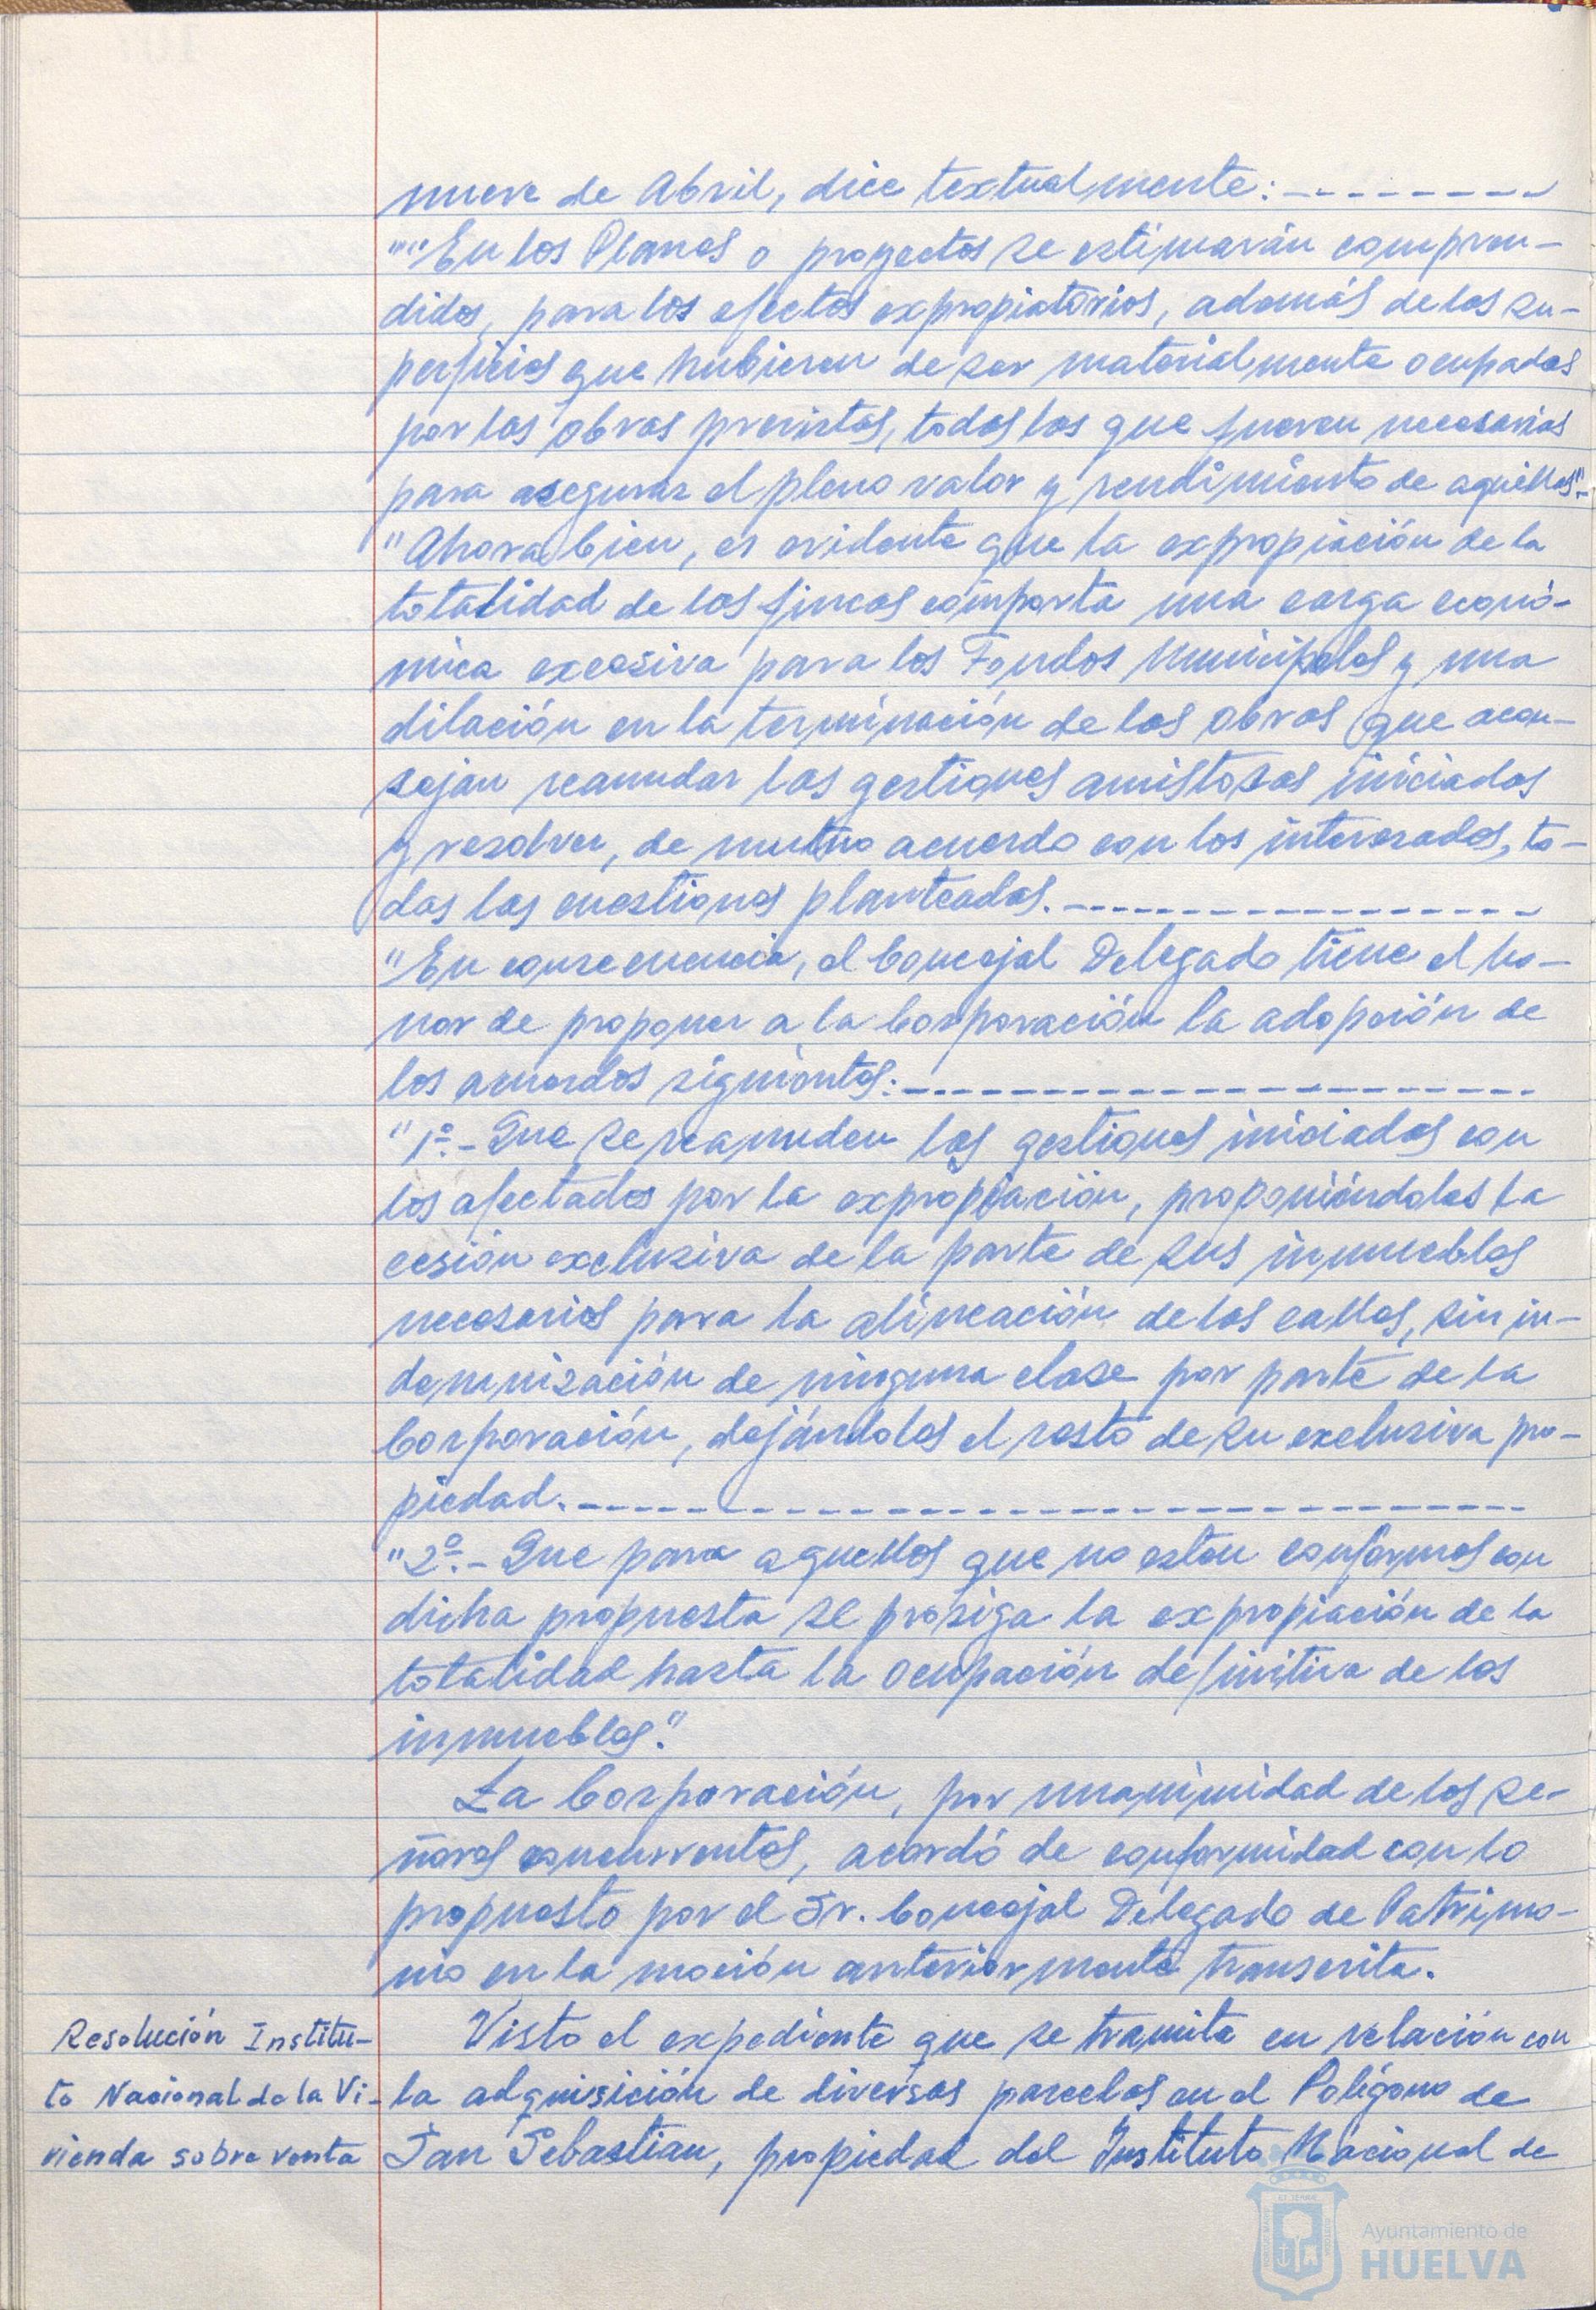 nueve de Abril, dice textualmente:
""En los Planos o proyectos se estimarán compren-
didos, para los efectos expropiatorios, además de las su-
perficies que hubieren de ser materialmente ocupadas
por las obras previstas, todas las que fueren necesarias
para asegurar el pleno valor y rendimiento de aquéllas"".
"Ahora bien, es evidente que la expropiación de la
totalidad de las fincas comporta una carga econó-
mica excesiva para los Fondos Municipales y una
dilación en la terminación de las obras que acon-
sejan reanudar las gestiones amistosas iniciadas
y resolver, de mutuo acuerdo con los interesados, to-
das las cuestiones planteadas.
"En consecuencia, el Concejal Delegado tiene el ho-
nor de proponer a la Corporación la adopción de
los acuerdos siguientes:
"1º.- Que se reanuden las gestiones iniciadas con
los afectados por la expropiación, proponiéndoles la
cesión exclusiva de la parte de sus inmuebles
necesarios para la alineación de las calles, sin in-
demnización de ninguna clase por parte de la
Corporación, dejándoles el resto de su exclusiva pro-
piedad.
"2º.- Que para aquellos que no esten conformes con
dicha propuesta se prosiga la expropiación de la
totalidad hasta la ocupación definitiva de los
inmuebles."
La Corporación, por unanimidad de los se-
ñores concurrentes, acordó de conformidad con lo
propuesto por el Sr. Concejal Delegado de Patrimo-
nio en la moción anteriormente transcrita.
Resolución Institu-
to Nacional de la Vi-
vienda sobre venta
Visto el expediente que se tramita en relación con
la adquisición de diversas parcelas en el Polígono de
San Sebastian, propiedad del Instituto Nacional de
Ayuntamiento de
HUELVA